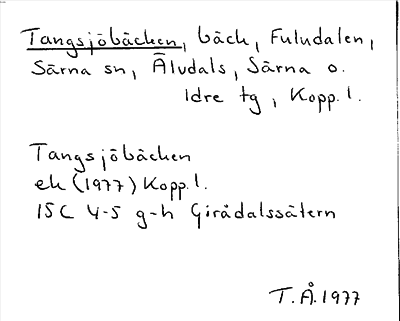 Tangsjöbäcken, bäck, Fuludalen,
Särna sn, Älvdals, Särna o.
Idre tg, Kopp. l.
Tangsjöbäcken
ek (1977) Kopp. l.
15C 4-5 g-h Girådalssätern
T.Å. 1977